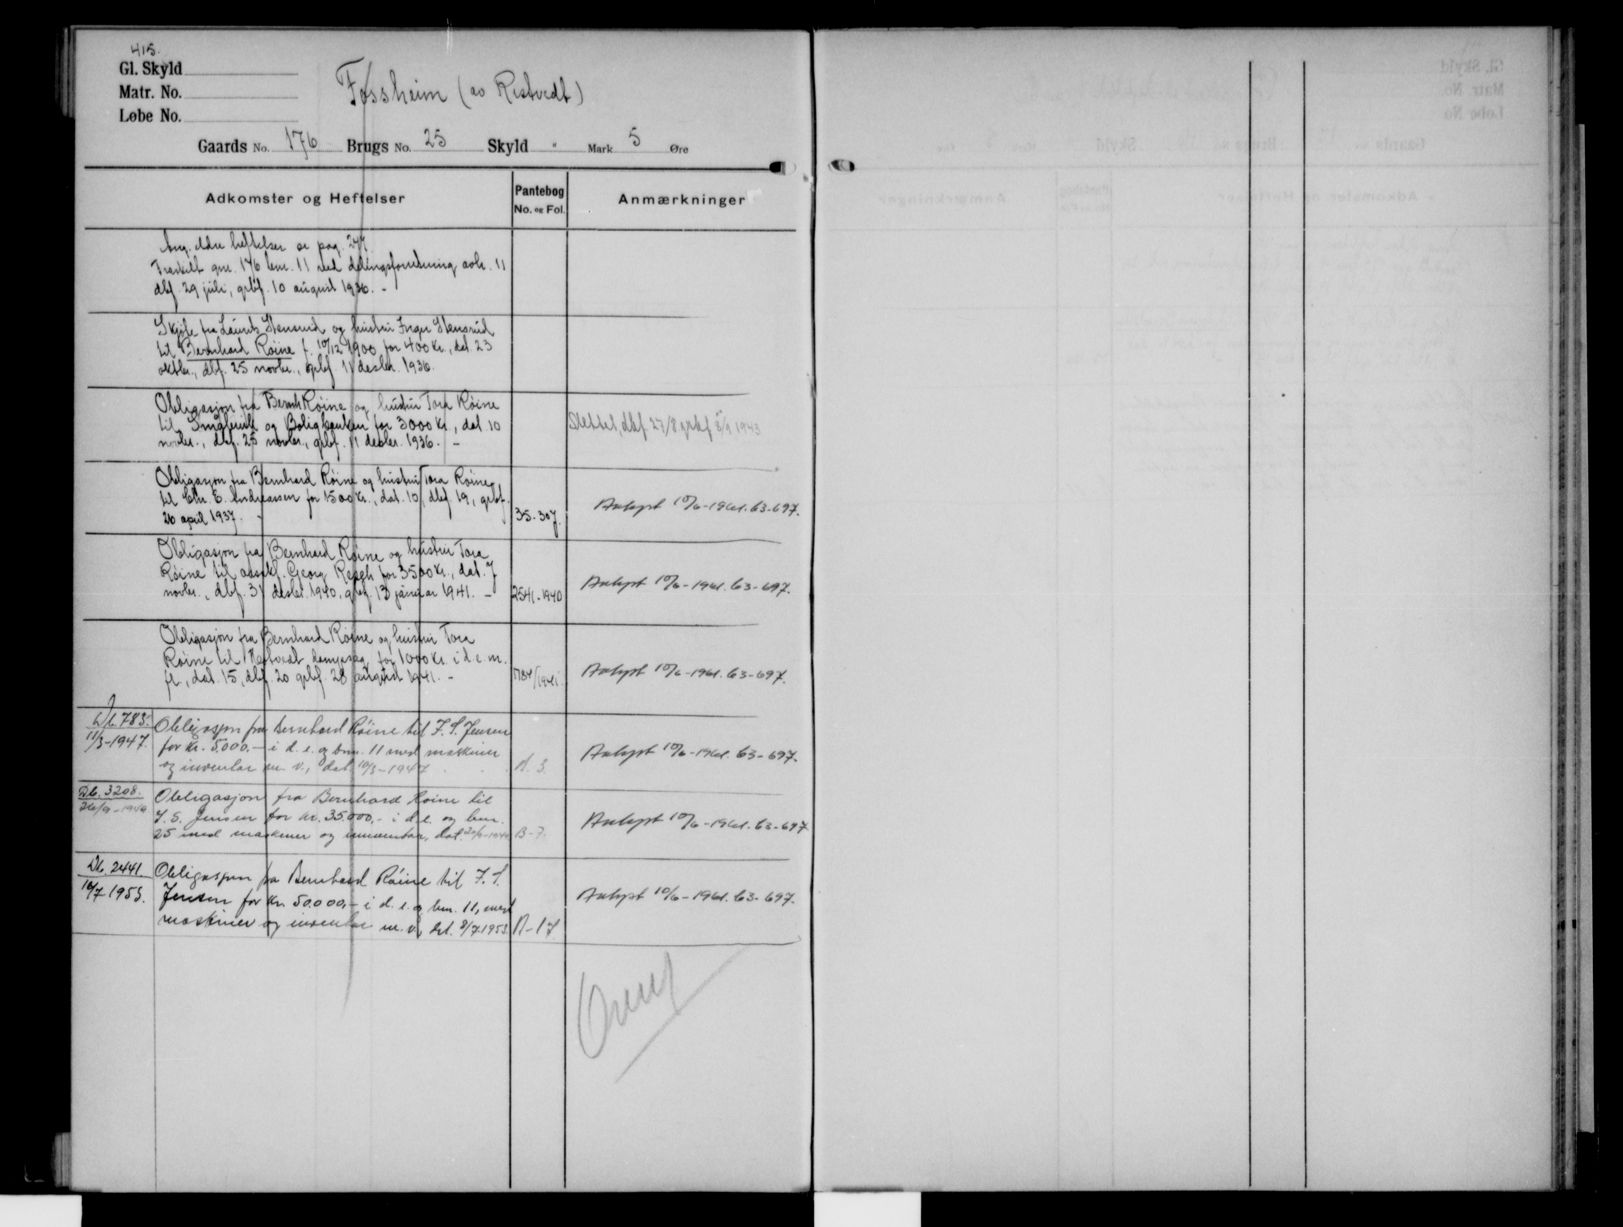 415.
Gl. Skyld
Matr. No.
Løbe No.
Fossheim (av Ristvedt)
Gaards No. 176 Brugs No. 25 Skyld " Mark 5 Øre
Adkomster og Heftelser
Pantebog
No. og Fol.
Anmærkninger
Ang. eldre heftelser se pag. 247.
Fraskilt gnr. 176 bnr. 11 ved delingsforretning avh. 11
dbf. 29 juli, grbf. 10 august 1936. -
Skjøte fra Lauritz Stensrud og hustru Inger Stensrud
til Bernhard Röine f. 10/12 1900 for 400 kr., dat. 23
oktbr., dbf. 25 novbr., grbf. 11 desbr. 1936.
Obligasjon fra Bernh Röine og hustru Tora Röine
til Småbruk og Boligbanken for 3000 kr., dat 10
novbr., dbf. 25 novbr., grbf. 11 desbr. 1936. -
Slettet, dbf 27/8 grbf 3/9 1943
Obligasjon fra Bernhard Röine og hustru Tora Röine
til Chr. E. Andreassen for 1500 kr., dat. 10, dbf. 19, grbf.
26 april 1937. -
35-307.
Avlyst 10/6-1961. 63-697.
Obligasjon fra Bernhard Röine og hustru Tora
Röine til Georg for 3500 kr., dat. 7
novbr., dbf. 31 desbr. 1940, grbf. 13 januar 1941. -
2541-1940
Avlyst 10/6-1961. 63-697.
Obligasjon fra Bernhard Röine og hustru Tora
Röine til for 1000 kr. i d. e. m.
fl., dat. 15, dbf. 20 grbf. 28 august 1941. -
1784/1941.
Avlyst 10/6-1961. 63-697.
Db. 783.
11/3-1947.
Obligasjon fra Bernhard Röine til J. S. Jensen
for kr. 5000.- i d. e. og bnr. 11 med maskiner
og inventar m. v., dat. 10/3-1947
A. 3.
Avlyst 10/6-1961. 63-697.
Db. 3208.
26/9-1949
Obligasjon fra Bernhard Röine til
J. S. Jensen for kr. 35.000,- i d. e. og bnr.
25 med maskiner og inventar, dat
B-7.
Avlyst 10/6-1961. 63-697
Db. 2441.
10/7 1953.
Obligasjon fra Bernhard Röine til J. S.
Jensen for kr. 50.000,- i d. e. og bnr. 11, med
maskiner og inventar m. v., dat. 8/7 1953.
A-17
Avlyst 10/6-1961. 63-697.